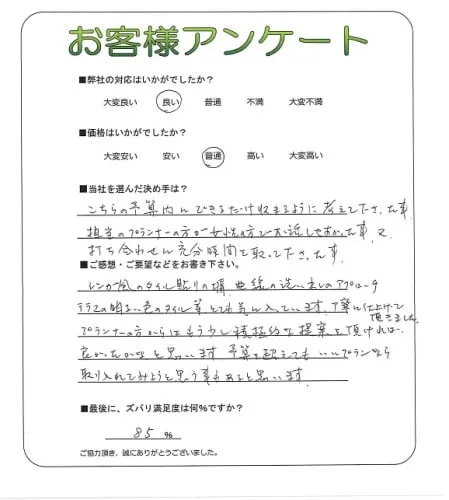 お客様アンケート
■弊社の対応はいかがでしたか？
大変良い 良い 普通 不満 大変不満
■価格はいかがでしたか？
大変安い 安い 普通 高い 大変高い
■当社を選んだ決め手は？
こちらの予算内にできるだけ収まるように考えて下さった事
担当のプランナーの方が女性の方でお話しやすかった事、又
打ち合わせに充分時間を取って下さった事、
■ご感想・ご要望などをお書き下さい。
レンガ風のタイル貼りの塀、曲線の洗い出しのアプローチ
テラスの明るい色のタイル等とても気に入っています。丁寧に仕上げて
頂きました。
プランナーの方からはもう少し積極的な提案を頂ければ、
良かったかなと思います 予算を超えても いいプランなら
取り入れてみようと思う事もあると思います。
■最後に、ズバリ満足度は何％ですか？
85 ％
ご協力頂き、誠にありがとうございました。